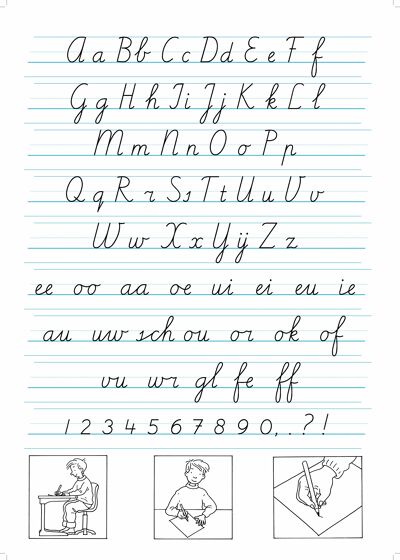 A a B b C c D d E e F f
G g H h I i J j K k L l
M m N n O o P p
Q q R r S s T t U u V v
W w X x Y ÿ Z z
ee oo aa oe ui ei eu ie
au uw sch ou or ok of
vu wr gl fe ff
1 2 3 4 5 6 7 8 9 0 , . ? !